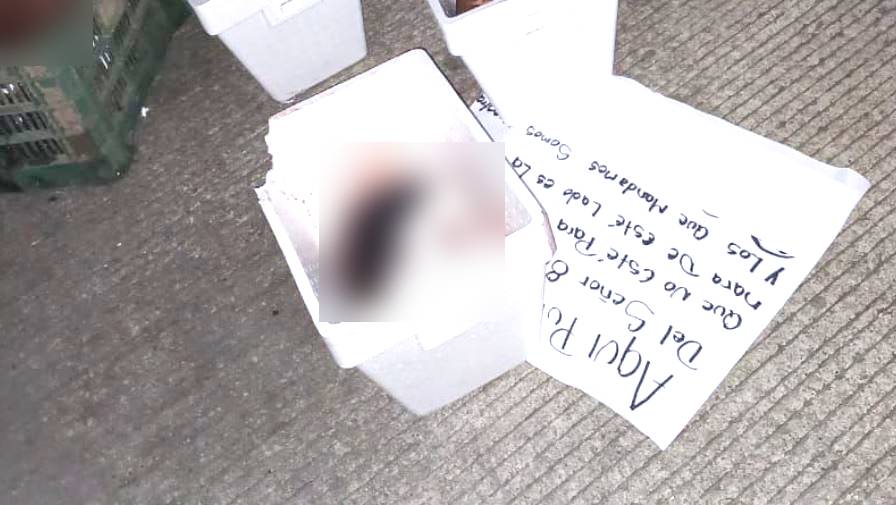 AQUI
Del Señor
Que No Esté Para
nara De esté Lado es La
y Los Que Mandamos Somos